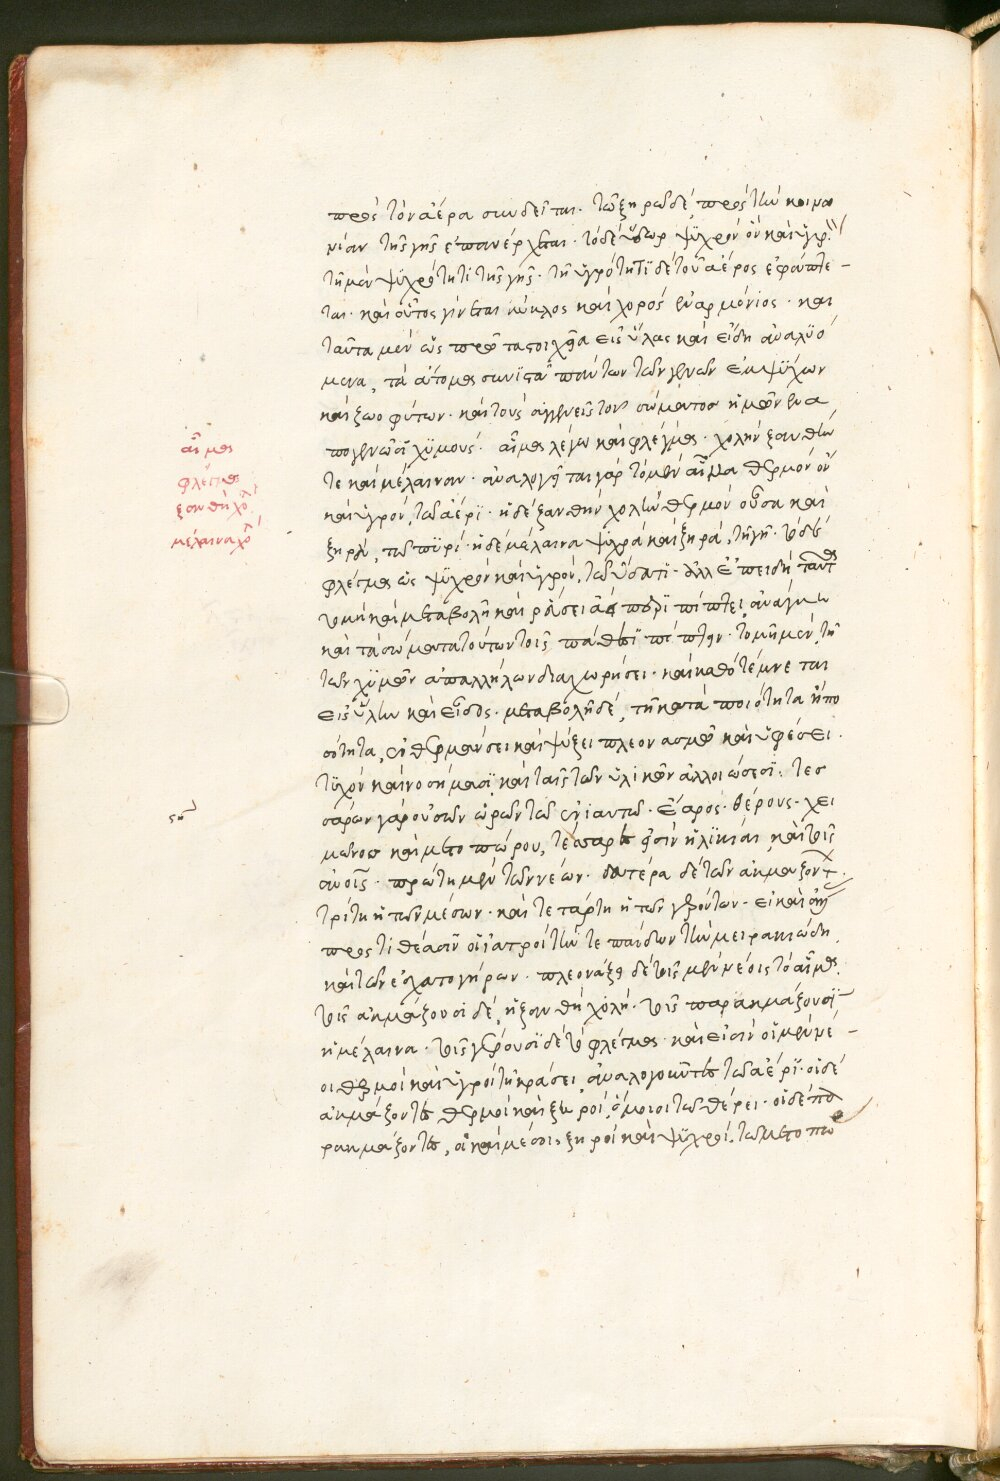 αἷμα
φλέγμα
ξανθὴ χολ
μέλαινα χο
πρὸς τὸν ἀέρα συνδεῖται· τῶ ξηρῶ δὲ πρὸς τὴν κοινω
νίαν τῆς γῆς ἐπανέρχεται· τὸ δὲ ὕδωρ ψϋχρὸν ὂν καὶ ὑγρὸν
τῆ μὲν ψϋχρότητι τῆς γῆς· τῆ ὑγρότητϊ δὲ τοῦ ἀέρος ἐφάπτε
ται· καὶ οὕτος γίνεται κύκλος καὶ χορὸς ἐναρμόνιος· καὶ
ταῦτα μὲν ὡς πρῶτα στοιχεῖα εἰς ὕλας καὶ εἴδη ἀναλϋό
μενα, τὰ ἄτομα συνϊστᾶ πάντων τῶν γενῶν ἐμψϋχων
καὶ ζωοφύτων· καὶ τοὺς ἀγγείοις τοῦ σώματος ἡμῶν ἐνα
πογεννῶσι χϋμούς· αἷμα λέγω καὶ φλέγμα· χολήν ξανθήν
τε καὶ μέλαιναν· ἀναλογεῖται γὰρ τὸ μὲν αἷμα θερμὸν ὂν
καὶ ὑγρόν, τῶ ἀέρϊ· ἡ δὲ ξανθὴ χολὴ θερμὴ οὖσα καὶ
ξηρὰ, τῶ πϋρί· ἡ δὲ μέλαινα ψϋχρὰ καὶ ξηρά, τῆ γῆ· τὸ δὲ
φλέγμα ὡς ψϋχρὸν καὶ ὑγρόν, τῶ ὕδατϊ· ἀλλ' ἐπειδὴ ταῦτα
τομῆ καὶ μεταβολῆ καὶ ῥεύσει ἀεὶ περϊπίπτει, ἀνάγκη
καὶ τὰ σώματα τούτων τοῖς πάθεσϊ πίπτειν· τομῆ μὲν τῆ
τῶν χϋμῶν ἀπαλλήλων διαχωρήσει· καὶ καθὸ τέμνεται
εἰς ὕλην καὶ εἶδος· μεταβολῆ δὲ, τῆ κατὰ ποιότητα ἢ πο
σότητα, ἐν θερμάνσει καὶ ψύξει πλεονασμῶ καὶ ὑφέσει·
τϋχὸν καὶ νοσήμασϊ καὶ ταῖς τῶν ὑλικῶν ἀλλοιώσεσϊ· τεσ
σάρων γὰρ οὐσῶν ὡρῶν τῶ ἐνιαυτῶ· ἔαρος· θέρους· χει
μῶνος καὶ μετοπώρου, τέσσαρες εἰσὶν ἡλϊκίαι καὶ τοῖς
ἀνοις· πρώτη μὲν τῶν νέων· δευτέρα δὲ τῶν ἀκμαζόντ
τρίτη ἡ τῶν μέσων· καὶ τετάρτη ἡ τῶν γερόντων· εἰ καὶ
προστιθέασιν οἱ ἰατροὶ τήν τε παίδων τὴν μειρακιώδη
καὶ τῶν ἐσχατογήρων· πλεονάζει δὲ τοῖς μὲν νέοις τὸ αἷμα
τοῖς ἀκμάζουσι δὲ, ἡ ξανθὴ χολή· τοῖς παρακμάζουσϊ
ἡ μέλαινα· τοῖς γέρουσϊ δὲ τὸ φλέγμα· καὶ εἰσὶν οἱ μὲν νέ
οι θερμοὶ καὶ ὑγροὶ τῆ κράσει, ἀναλογοῦντες τῶ ἀέρϊ· οἱ δὲ
ἀκμάζοντες θερμοὶ καὶ ξηροὶ, ὅμοιοι τῶ θέρει· οἱ δὲ πα
ρακμάζοντες, οἱ καὶ μέσοι, ξηροὶ καὶ ψϋχροί, τῶ μετοπώ